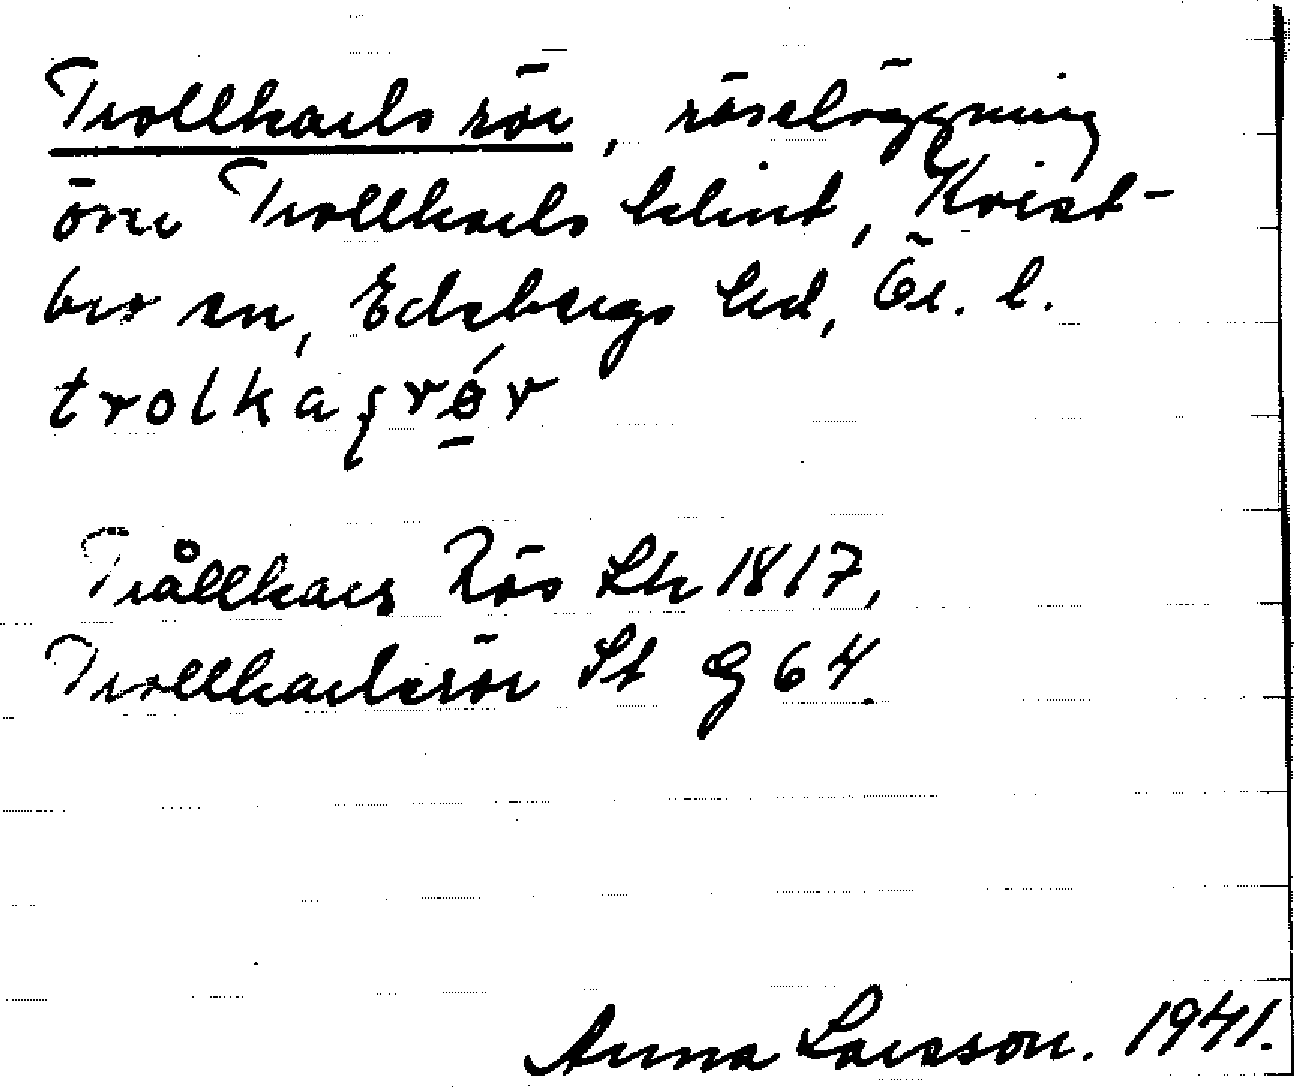 Trollkarls rör, röseläggning
övre Trollkarls klint, Kvist-
bro sn, Edsbergs hd, Ör. l.
trolkaʂrör

Trållkars Rös Lk 1817,
Trollkarlsrör St G 64.

Anna Larsson. 1941.